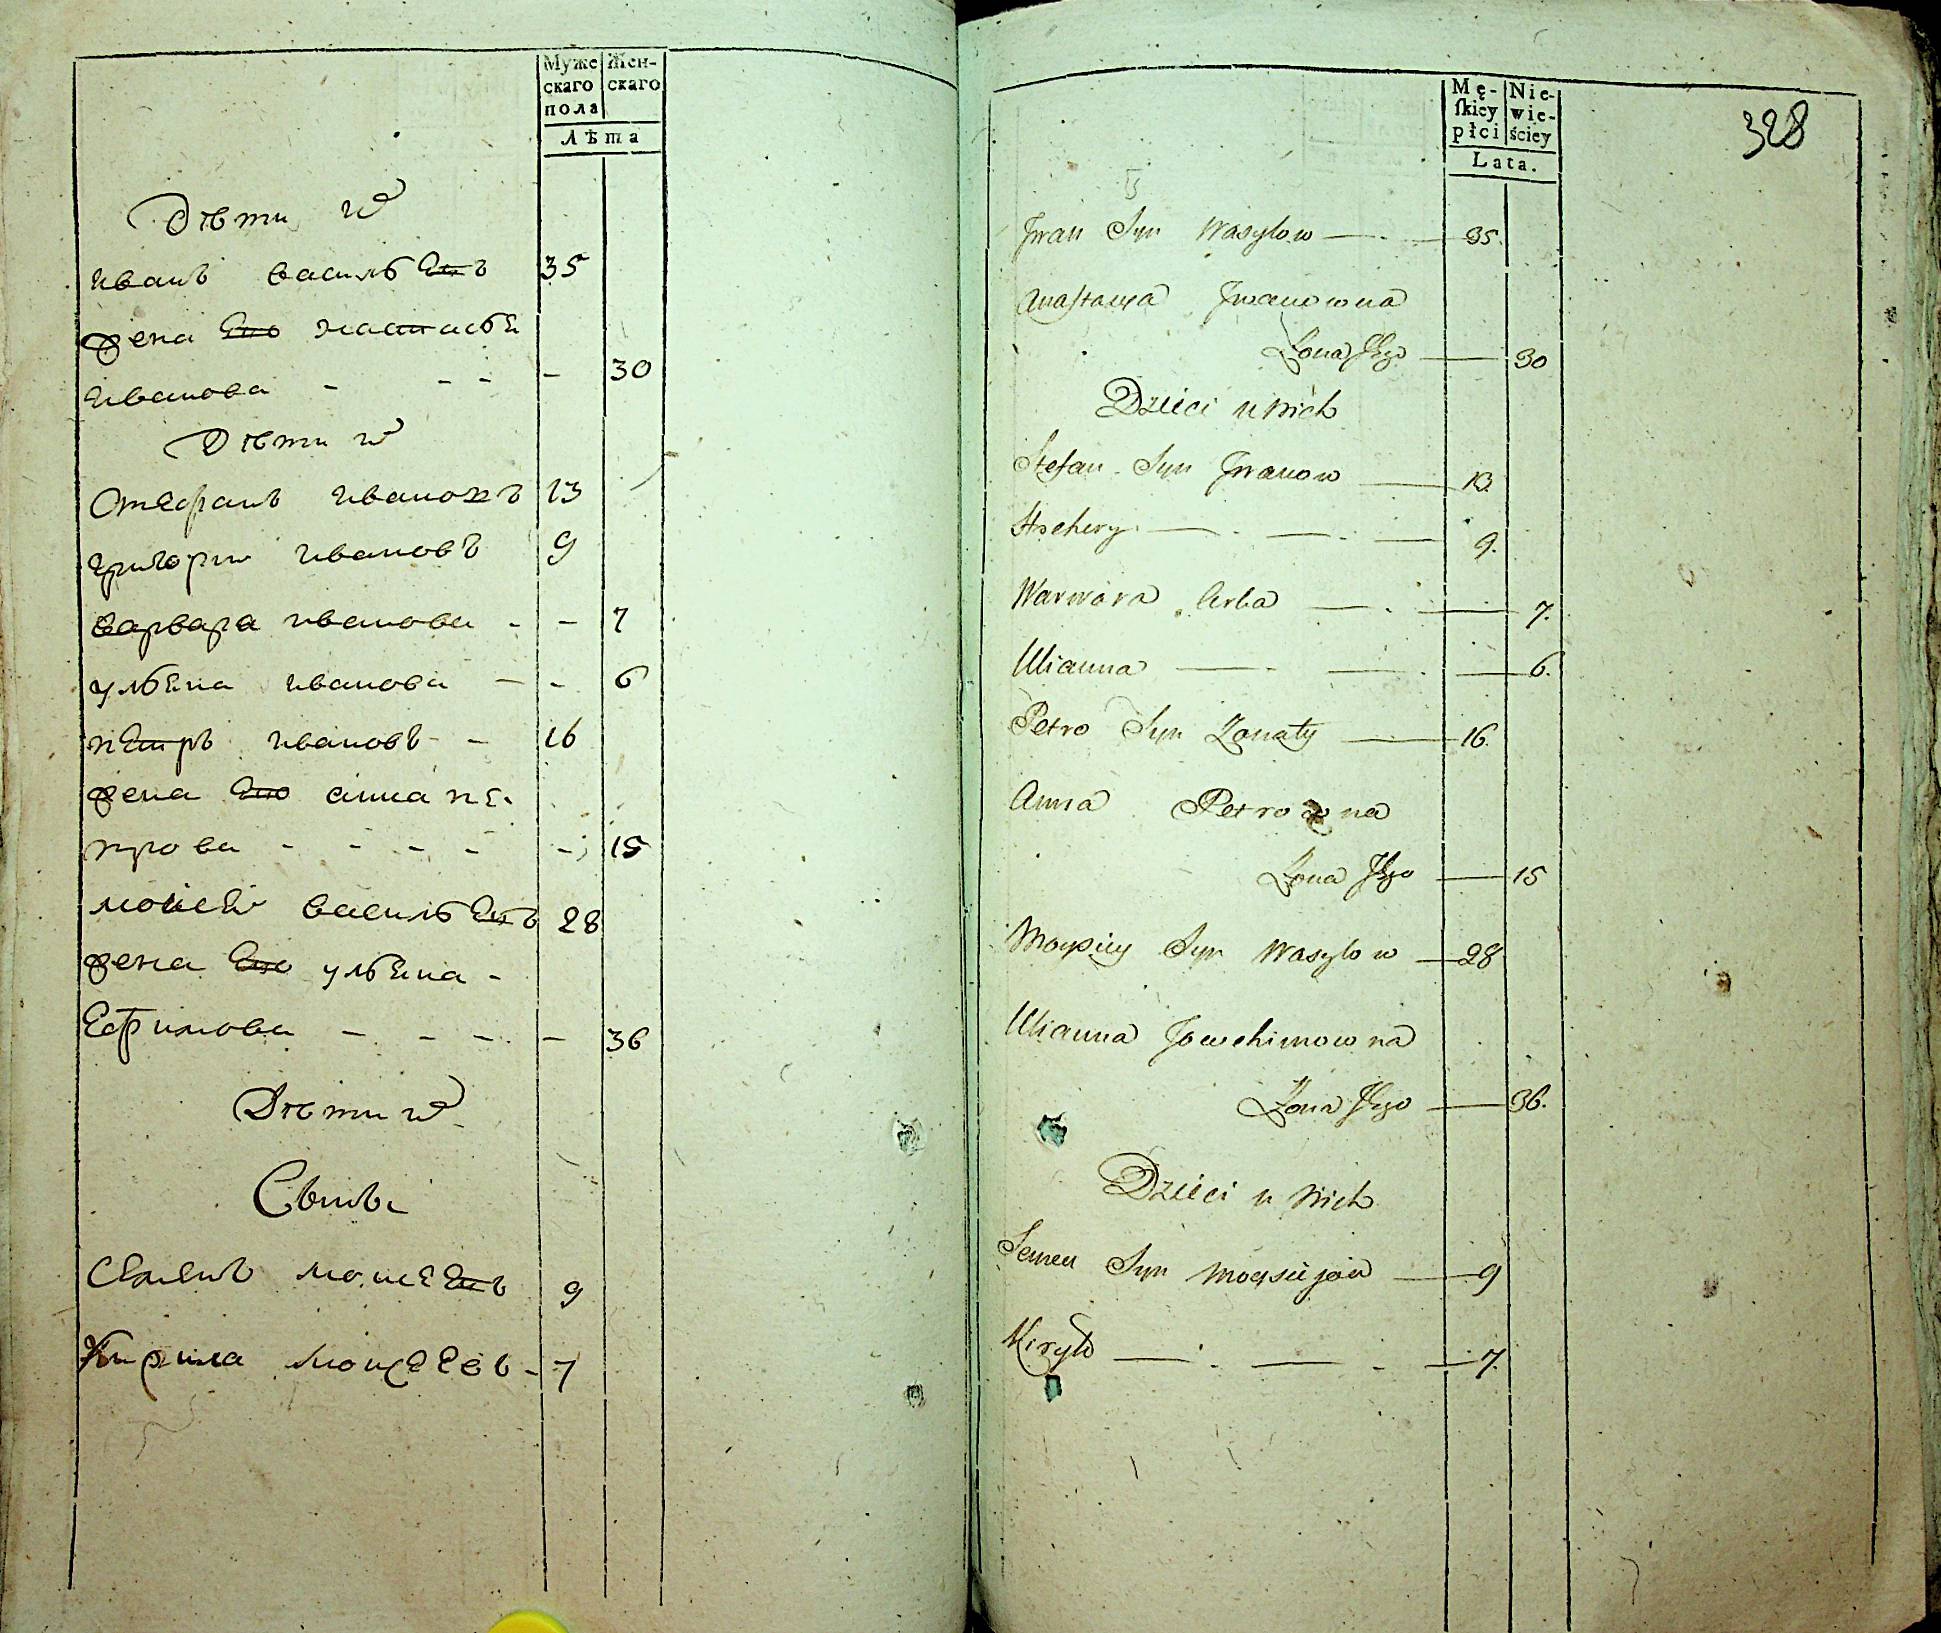 Муже
скаго
пола
Жен-
скаго
Лѣта
Дѣти ихъ
иванъ васильевъ 35
жена его настасья
иванова - - - - 30
Дѣти ихъ
Стефанъ ивановъ 13
григории ивановъ 9
варвара иванова - - 7
ульяна иванова - - 6
петръ ивановъ - - 16
жена его анна пе-
трова - - - - - 15
моисей васильевъ 28
жена его ульяна -
Ефимова - - - - 36
Дѣти ихъ
Семенъ моисеевъ 9
Кирила моисеевъ - 7
Mę-
ſkiey
płci
Nie-
wie-
ściey
Lata.
328
Jwan Syn Wasylow — . — 35.
Anastazya Jwanowna
Żona Jego — 30
Dzieci u nich
Stefan Syn Jwanow — 13.
Hrehery — . — . — 9.
Warwara Corka — . — 7.
Ulianna — . — . — 6.
Petro Syn — 16.
Anna Petrowna
Żona Jego — 15
Moysiey Syn Wasylow — 28
Ulianna Jowchimowna
Żona Jego — 36.
Dzieci u Nich
Semen Syn Moysiejow — 9
Kiryło — . — . — 7.